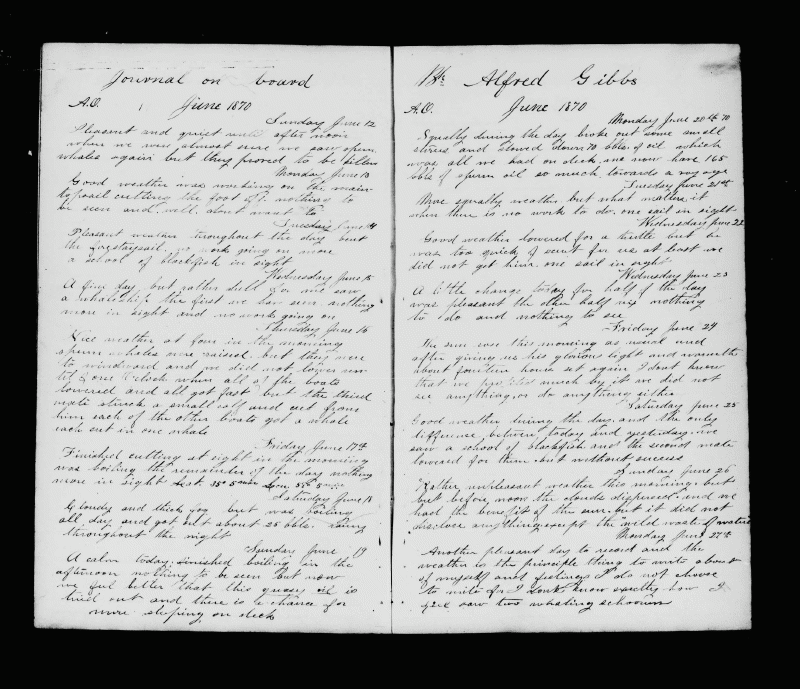 Journal on board
A.D. June 1870
Sunday June 12
Pleasant and quiet until after noon
when we was almost sure we saw sperm
whales again but they proved to be killers
Monday June 13
Good weather was working on the main
topsail cutting the foot off. nothing to
be seen and well, dont want to
Tuesday June 14
Pleasant weather throughout the day bent
the forestaysail no work going on more
a school of blackfish in sight
Wednesday June 15
A fine day, but rather dull for me saw
a whaleship the first we have seen nothing
more in sight and no work going on
Thursday June 16
Nice weather at four in the morning
sperm whales were raised but they were
to windward and we did not lower un-
til one O'clock when all of the boats
lowered and all got fast but the third
mate struck a small calf and cut from
him each of the other boats got a whale
each cut in one whale
Friday June 17th
Finished cutting at eight in the morning
was boiling the remainder of the day nothing
more in sight Lat. 35° 5 Lon. 55° 5
Saturday June 18
Cloudy and thick fog but was boiling
all day and got out about 25 bbls. laing
throughout the night
Sunday June 19
A calm today, finished boiling in the
afternoon nothing to be seen but now
we feel better that this greasy oil is
tried out and there is a chance for
more sleeping on deck
Alfred Gibbs
A.D. June 1870
Monday June 20th 70
Squally during the day broke out some small
stores and stowed down 70 bbls. of oil which
was all we had on deck. we now have 165
bbls of sperm oil so much towards a voyage
Tuesday June 21st
More squally weather but what matters it
when there is no work to do. one sail in sight
Wednesday June 22
Good weather lowered for a turtle but he
was too quick of scent for us at least we
did not get him. one sail in sight
Wednesday June 23
A little change today for half of the day
was pleasant the other half nix nothing
to do and nothing to see
Friday June 24
The sun rose this morning as usual and
after giving us his glorious light and warmth
about fourteen hours set again I dont know
that we profited much by it we did not
see anything, or do anything either
Saturday June 25
Good weather during the day. and the only
difference between today and yesterday. we
saw a school of blackfish and the second mate
lowered for them. but without success
Sunday June 26
Rather unpleasant weather this morning. but
but before noon the clouds dispersed and we
had the benefit of the sun. but it did not
disclose anything except the wild waste of waters
Monday June 27th
Another pleasant day to record and the
weather is the principle thing to write about
of myself and feelings I do not choose
to write for I dont know exactly how I
feel saw two whaling schooners